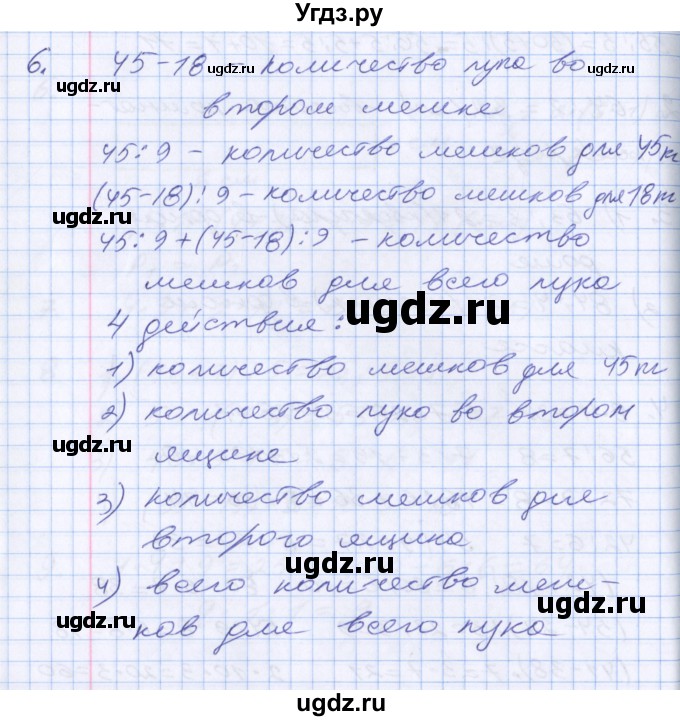 Угдз.ру
6. 45-18 - количество лука во
втором мешке
45:9 - количество мешков для 45кг
(45-18):9 - количество мешков для 18кг
45:9+(45-18):9 - количество
мешков для всего лука
4 действия:
1) количество мешков для 45кг
2) количество луко во втором
ящике
3) количество мешков для
второго ящика.
4) всего количество меш-
ков для всего лука
ugdz.ru
ugdz.ru
ugdz.ru
ugdz.ru
ugdz.ru
ugdz.ru
ugdz.ru
ugdz.ru
ugdz.ru
ugdz.ru
ugdz.ru
ugdz.ru